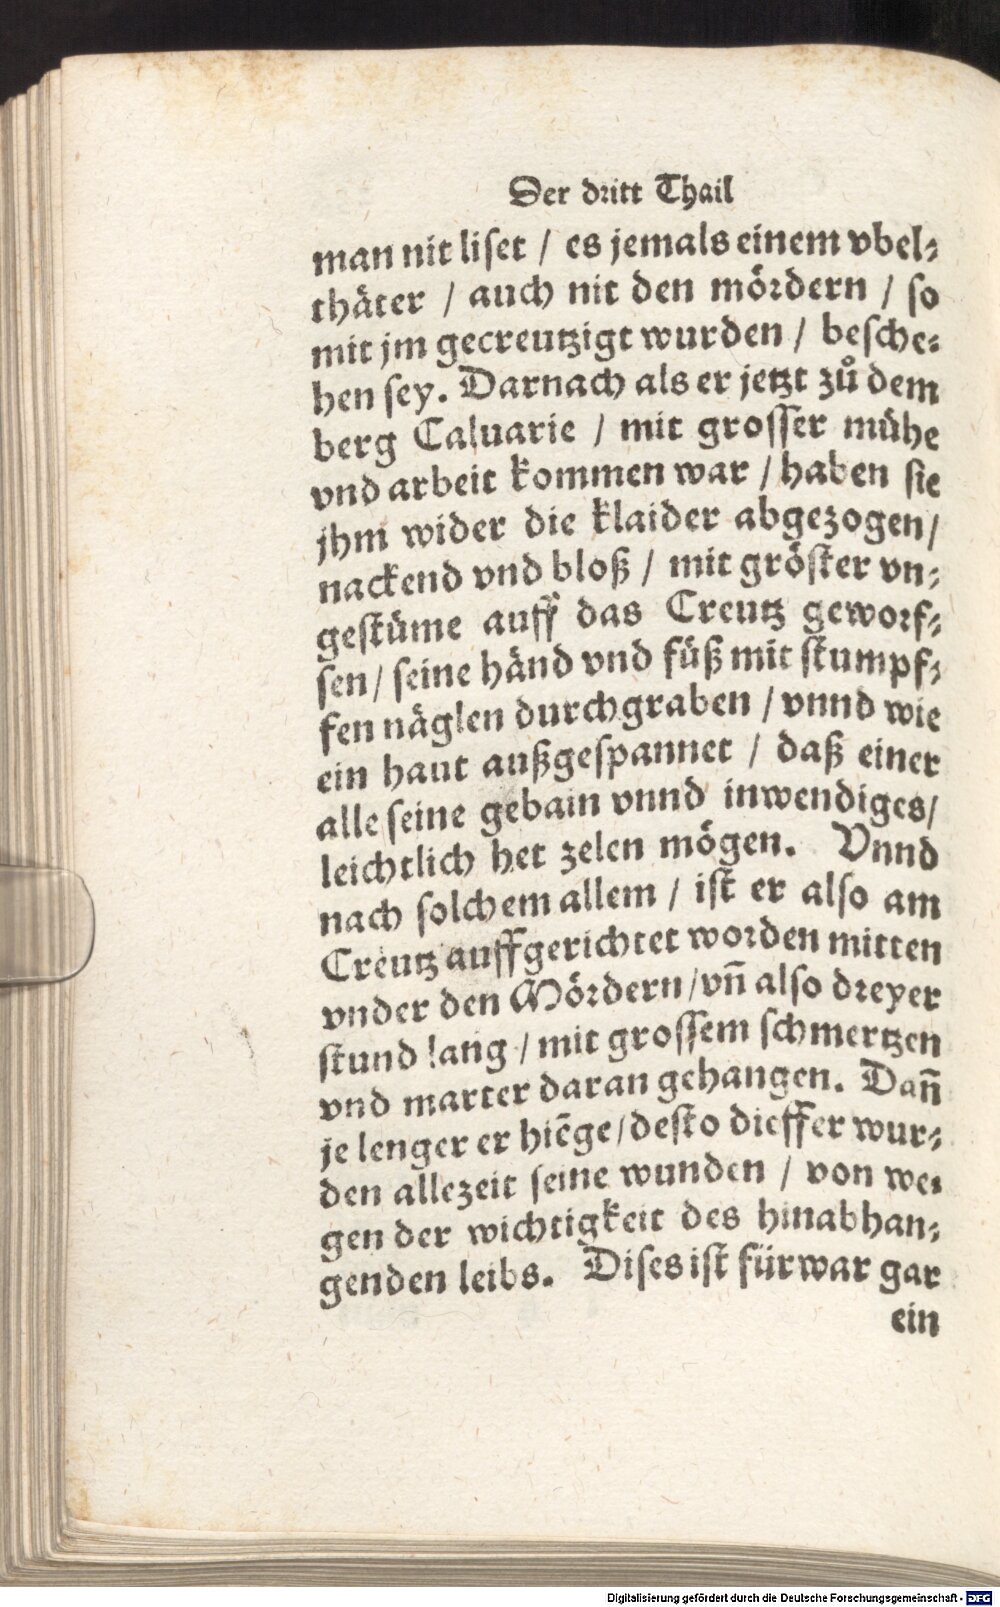 Der dritt Thail
man nit liset / es jemals einem vbel⸗
thäter / auch nit den mördern / so
mit jm gecreutzigt wurden / besche⸗
hen sey. Darnach als er jetzt zů dem
berg Caluarie / mit grosser mühe
vnd arbeit kommen war / haben sie
jhm wider die klaider abgezogen /
nackend vnd bloß / mit gröster vn⸗
gestüme auff das Creutz geworf⸗
fen / seine händ vnd füß mit stumpf⸗
fen näglen durchgraben / vnnd wie
ein haut außgespannet / daß einer
alle seine gebain vnnd inwendiges /
leichtlich het zelen mögen. Vnnd
nach solchem allem / ist er also am
Creutz auffgerichtet worden mitten
vnder den Mördern / vñ also dreyer
stund lang / mit grossem schmertzen
vnd marter daran gehangen. Dañ
je lenger er hiēge / desto dieffer wur⸗
den allezeit seine wunden / von we⸗
gen der wichtigkeit des hinabhan⸗
genden leibs. Dises ist fürwar gar
ein
Digitalisierung gefördert durch die Deutsche Forschungsgemeinschaft - DFG